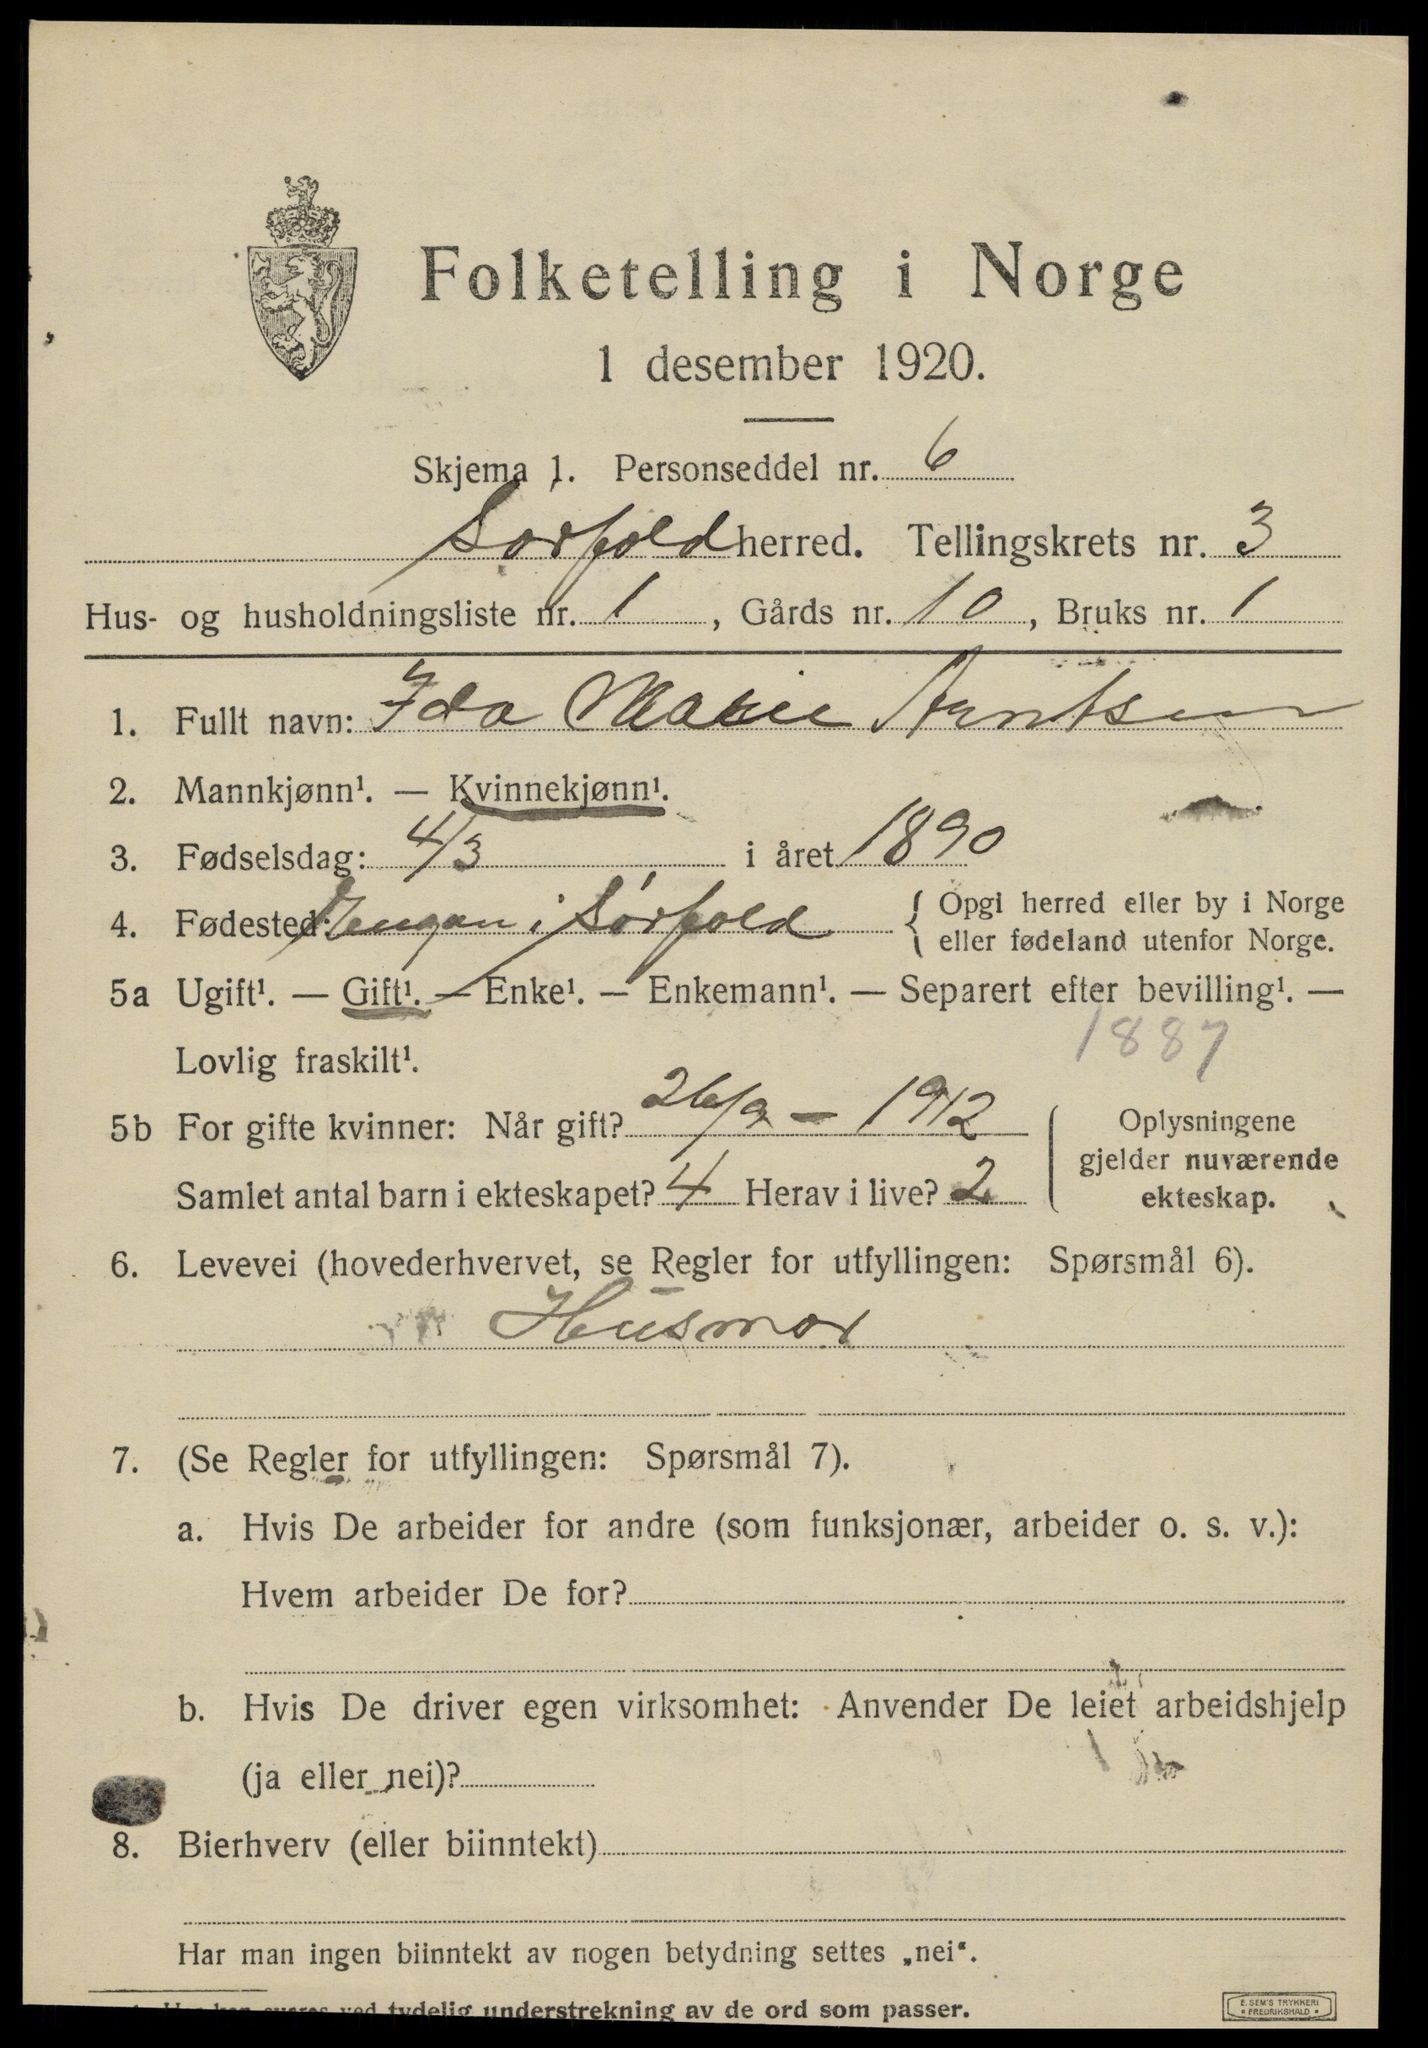 Folketelling i Norge
1 desember 1920.
Skjema 1. Personseddel nr. 6
Sørfold herred. Tellingskrets nr. 3
Hus- og husholdningsliste nr. 1, Gårds nr. 10, Bruks nr. 1
1. Fullt navn: Ida Marie Arntsen
2. Mannkjønn¹. — Kvinnekjønn¹.
3. Fødselsdag: 4/3 i året 1890
4. Fødested: i Sørfold { Opgi herred eller by i Norge
eller fødeland utenfor Norge.
5a Ugift¹. — Gift¹. — Enke¹. — Enkemann¹. — Separert efter bevilling¹. —
Lovlig fraskilt¹. 1887
5b For gifte kvinner: Når gift? 26/9 – 1912
Samlet antal barn i ekteskapet? 4 Herav i live? 2
Oplysningene
gjelder nuværende
ekteskap.
6. Levevei (hovederhvervet, se Regler for utfyllingen: Spørsmål 6).
Husmor
7. (Se Regler for utfyllingen: Spørsmål 7).
a. Hvis De arbeider for andre (som funksjonær, arbeider o. s. v.):
Hvem arbeider De for?
b. Hvis De driver egen virksomhet: Anvender De leiet arbeidshjelp
(ja eller nei)?
8. Bierhverv (eller biinntekt)
Har man ingen biinntekt av nogen betydning settes „nei“.
tydelig understrekning av de ord som passer.
E. SEM'S TRYKKERI
FREDRIKSHALD